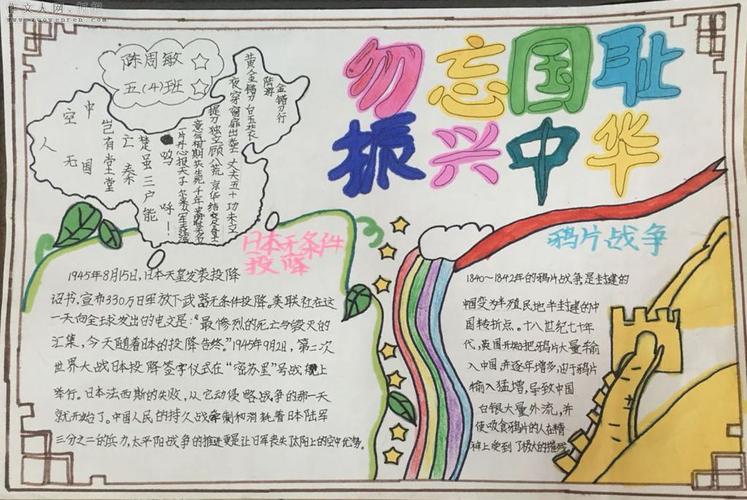 www.zuowenren.com
陈周敏
五(4)班
勿忘国耻
振兴中华
金错刀行
陆游
黄金错刀白玉装
夜穿窗扉出光芒
丈夫五十功未立
提刀独立顾八荒
京华结交尽奇士
意气相期共生死
千年史策耻无名
一片丹心报天子
呜呼!
楚虽三户能
亡秦
岂有堂堂
中国
空
无人
日本无条件
投降
1945年8月15日,日本天皇发表投降
诏书,宣布330万日军放下武器无条件投降。美联社在这
一天向全球发出的电文是:“最惨烈的死亡与毁灭的
汇集,今天随着日本的投降告终。”1945年9月2日,第二次
世界大战日本投降签字仪式在“密苏里”号战舰上
举行。日本法西斯的失败,从它动侵略战争的那一天
就开始了。中国人民的持久战牵制和消耗着日本陆军
三分之二的兵力,太平洋战争的推进更是让日军丧失
鸦片战争
1840~1842年的鸦片战争,是封建的
中国变为半殖民地半封建的中
国转折点。十八世纪七十年
代,英国开始把鸦片大量
输入中国,并逐年增多,由于鸦片
输入猛增,导致中国
白银大量外流,并
使吸食鸦片的人在精
神上受到了极大的摧残